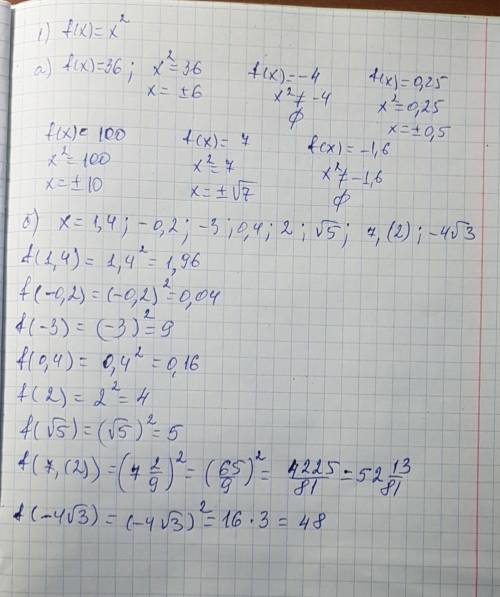 1) f(x) = x²
а) f(x)=36; x²=36 f(x)=-4 f(x)=0,25
x = ±6 x² ≠ -4 x²=0,25
∅ x=±0,5
f(x)= 100 f(x)= 7 f(x)=-1,6
x²= 100 x²=7 x²≠-1,6
x=±10 x=±√7 ∅
б) x = 1,4; -0,2; -3; 0,4; 2; √5; 7,(2); -4√3
f(1,4) = 1,4² = 1,96
f(-0,2) = (-0,2)² = 0,04
f(-3) = (-3)² = 9
f(0,4) = 0,4² = 0,16
f(2) = 2² = 4
f(√5) = (√5)² = 5
f(7,(2)) = (7 2/9)² = (65/9)² = 4225/81 = 52 13/81
f(-4√3) = (-4√3)² = 16·3 = 48